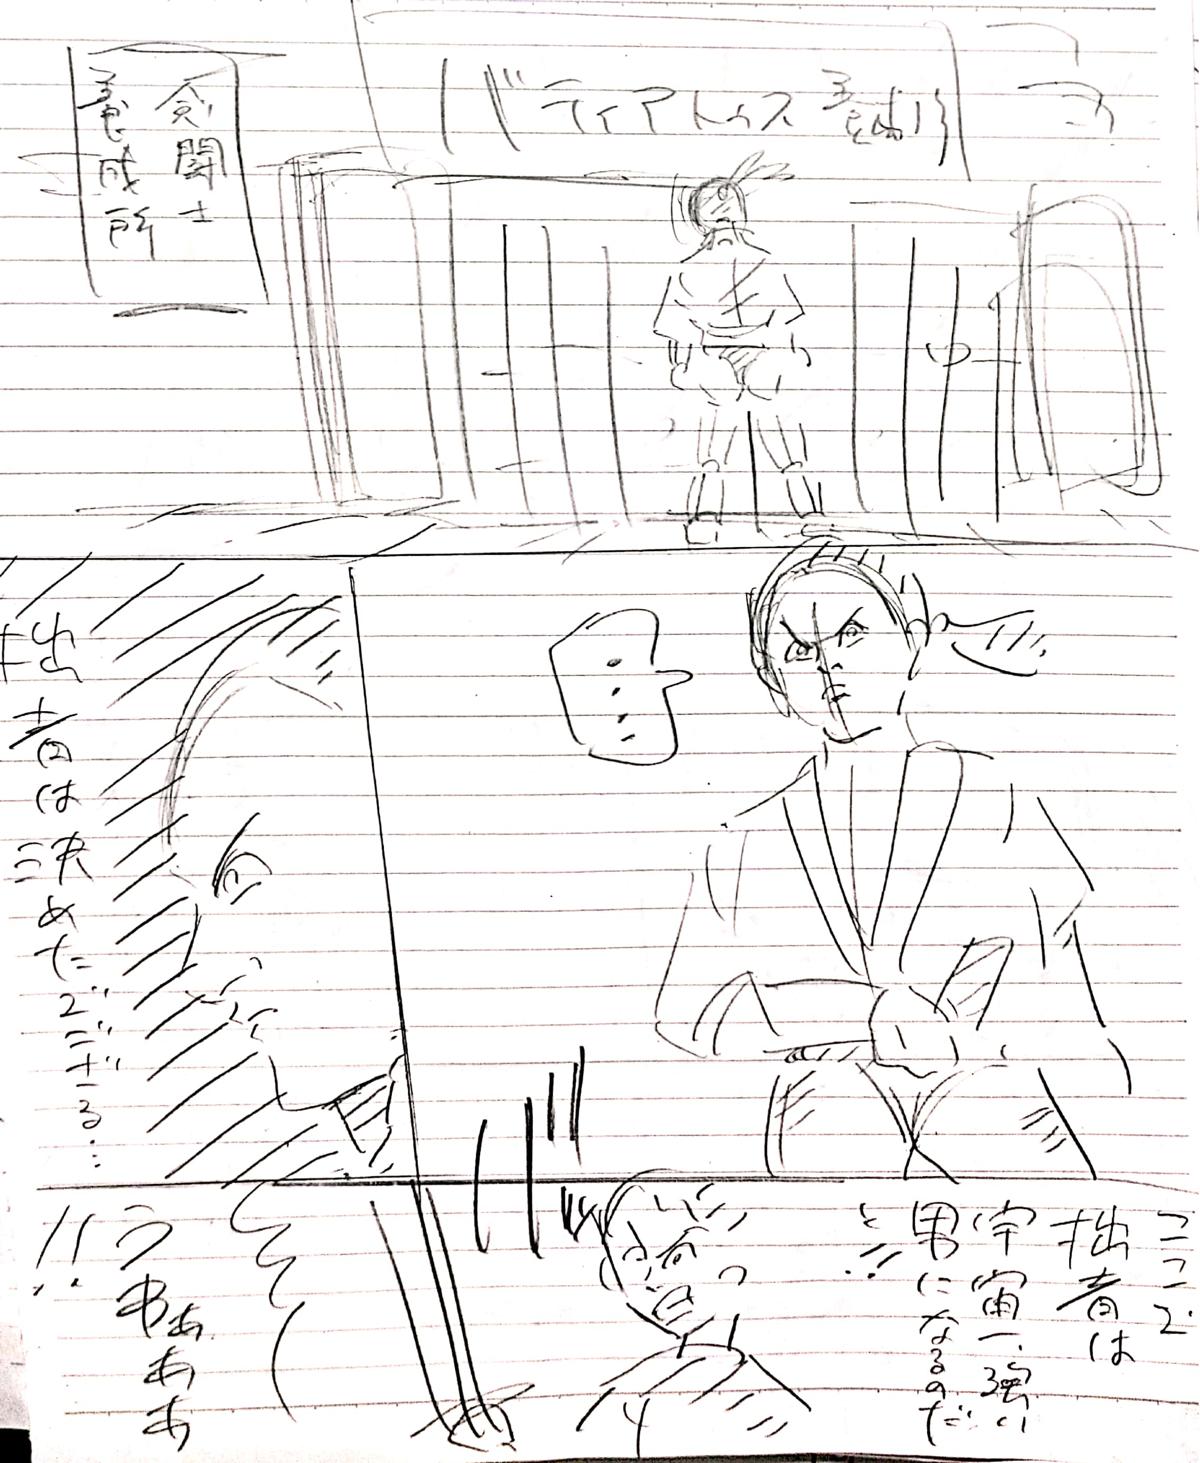 バティアトゥス養成所
剣闘士
養成所
拙者は決めたでござる…
ここで
拙者は
宇宙一強い
男になるのだ
と!!
うおぁぁぁ
!!